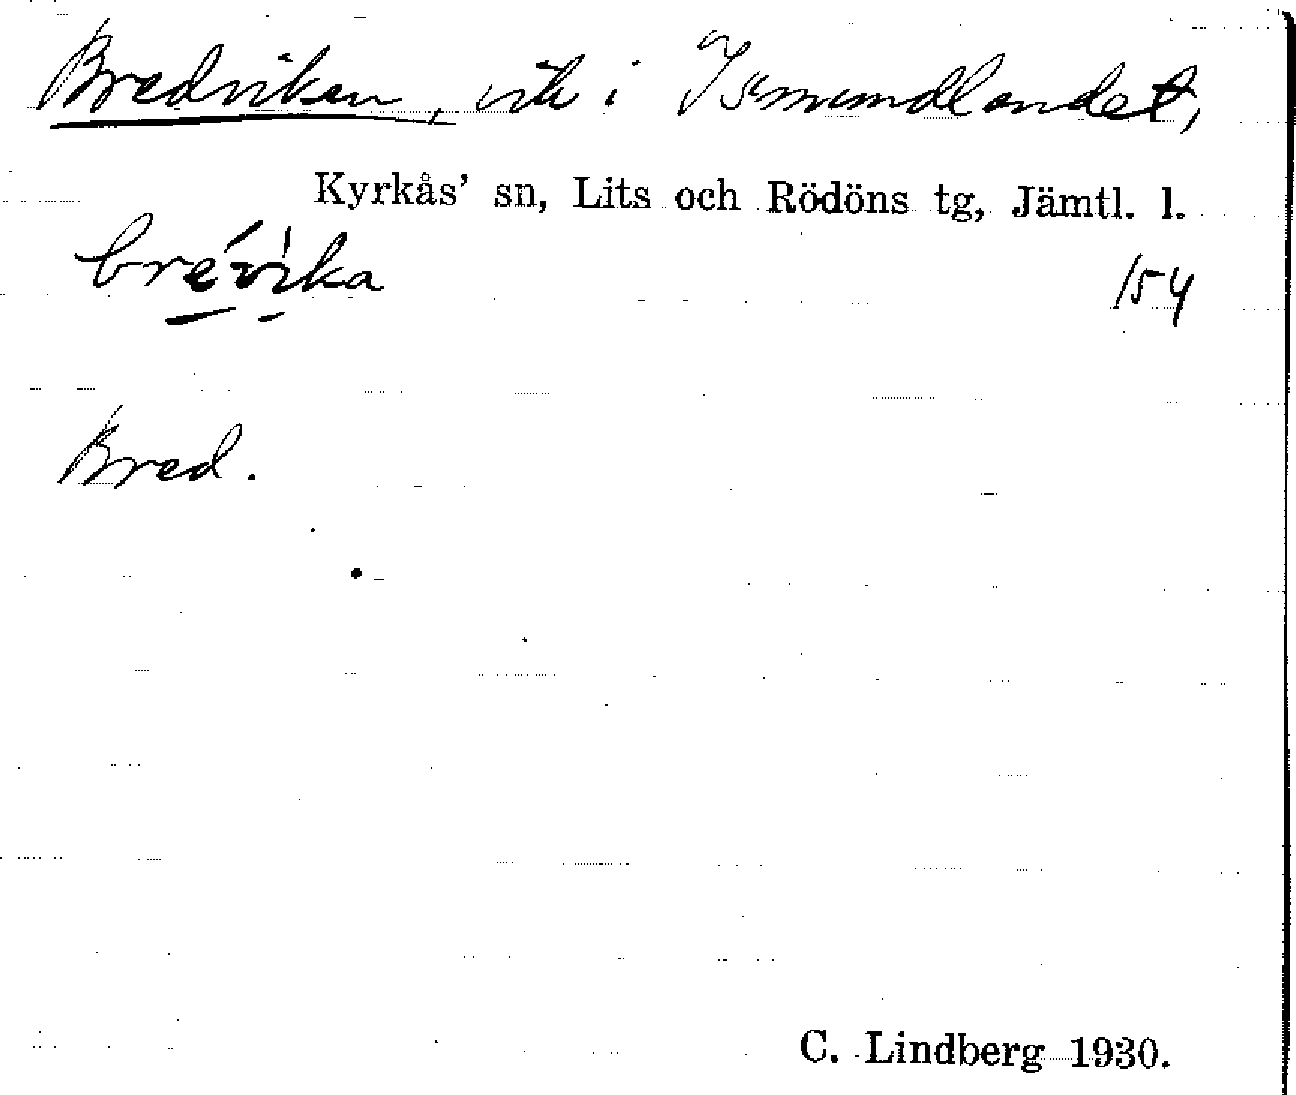 Bredviken, vik i Ismundlandet,
Kyrkås' sn, Lits och Rödöns tg, Jämtl. l.
brévika
154
Bred.
C. Lindberg 1930.